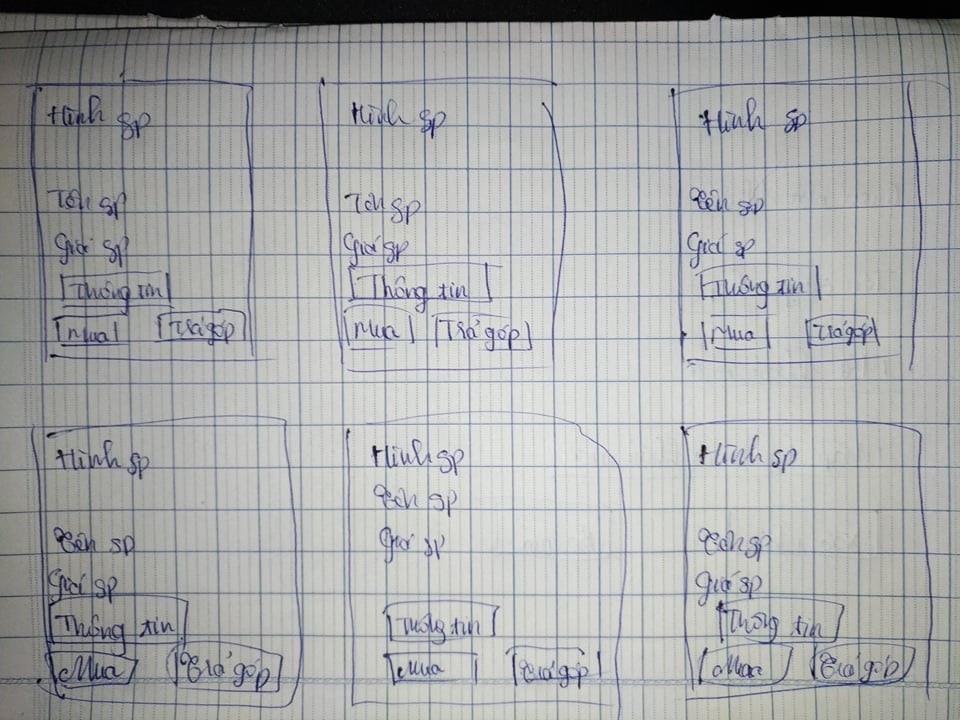 Hình sp
Tên sp
Giá sp
Thông tin
Mua Trả góp
Hình sp
Tên sp
Giá sp
Thông tin
Mua Trả góp
Hình sp
Tên sp
Giá sp
Thông tin
Mua Trả góp
Hình sp
Tên sp
Giá sp
Thông tin
Mua Trả góp
Hình sp
Tên sp
Giá sp
Thông tin
Mua Trả góp
Hình sp
Tên sp
Giá sp
Thông tin
Mua Trả góp